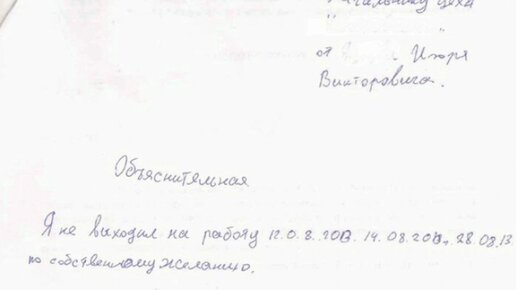 Начальнику цеха
"
от Игоря
Викторовича.
Объяснительная
Я не выходил на работу 12.0.8.2013. 14.08.2013, 28.08.13
по собственному желанию.